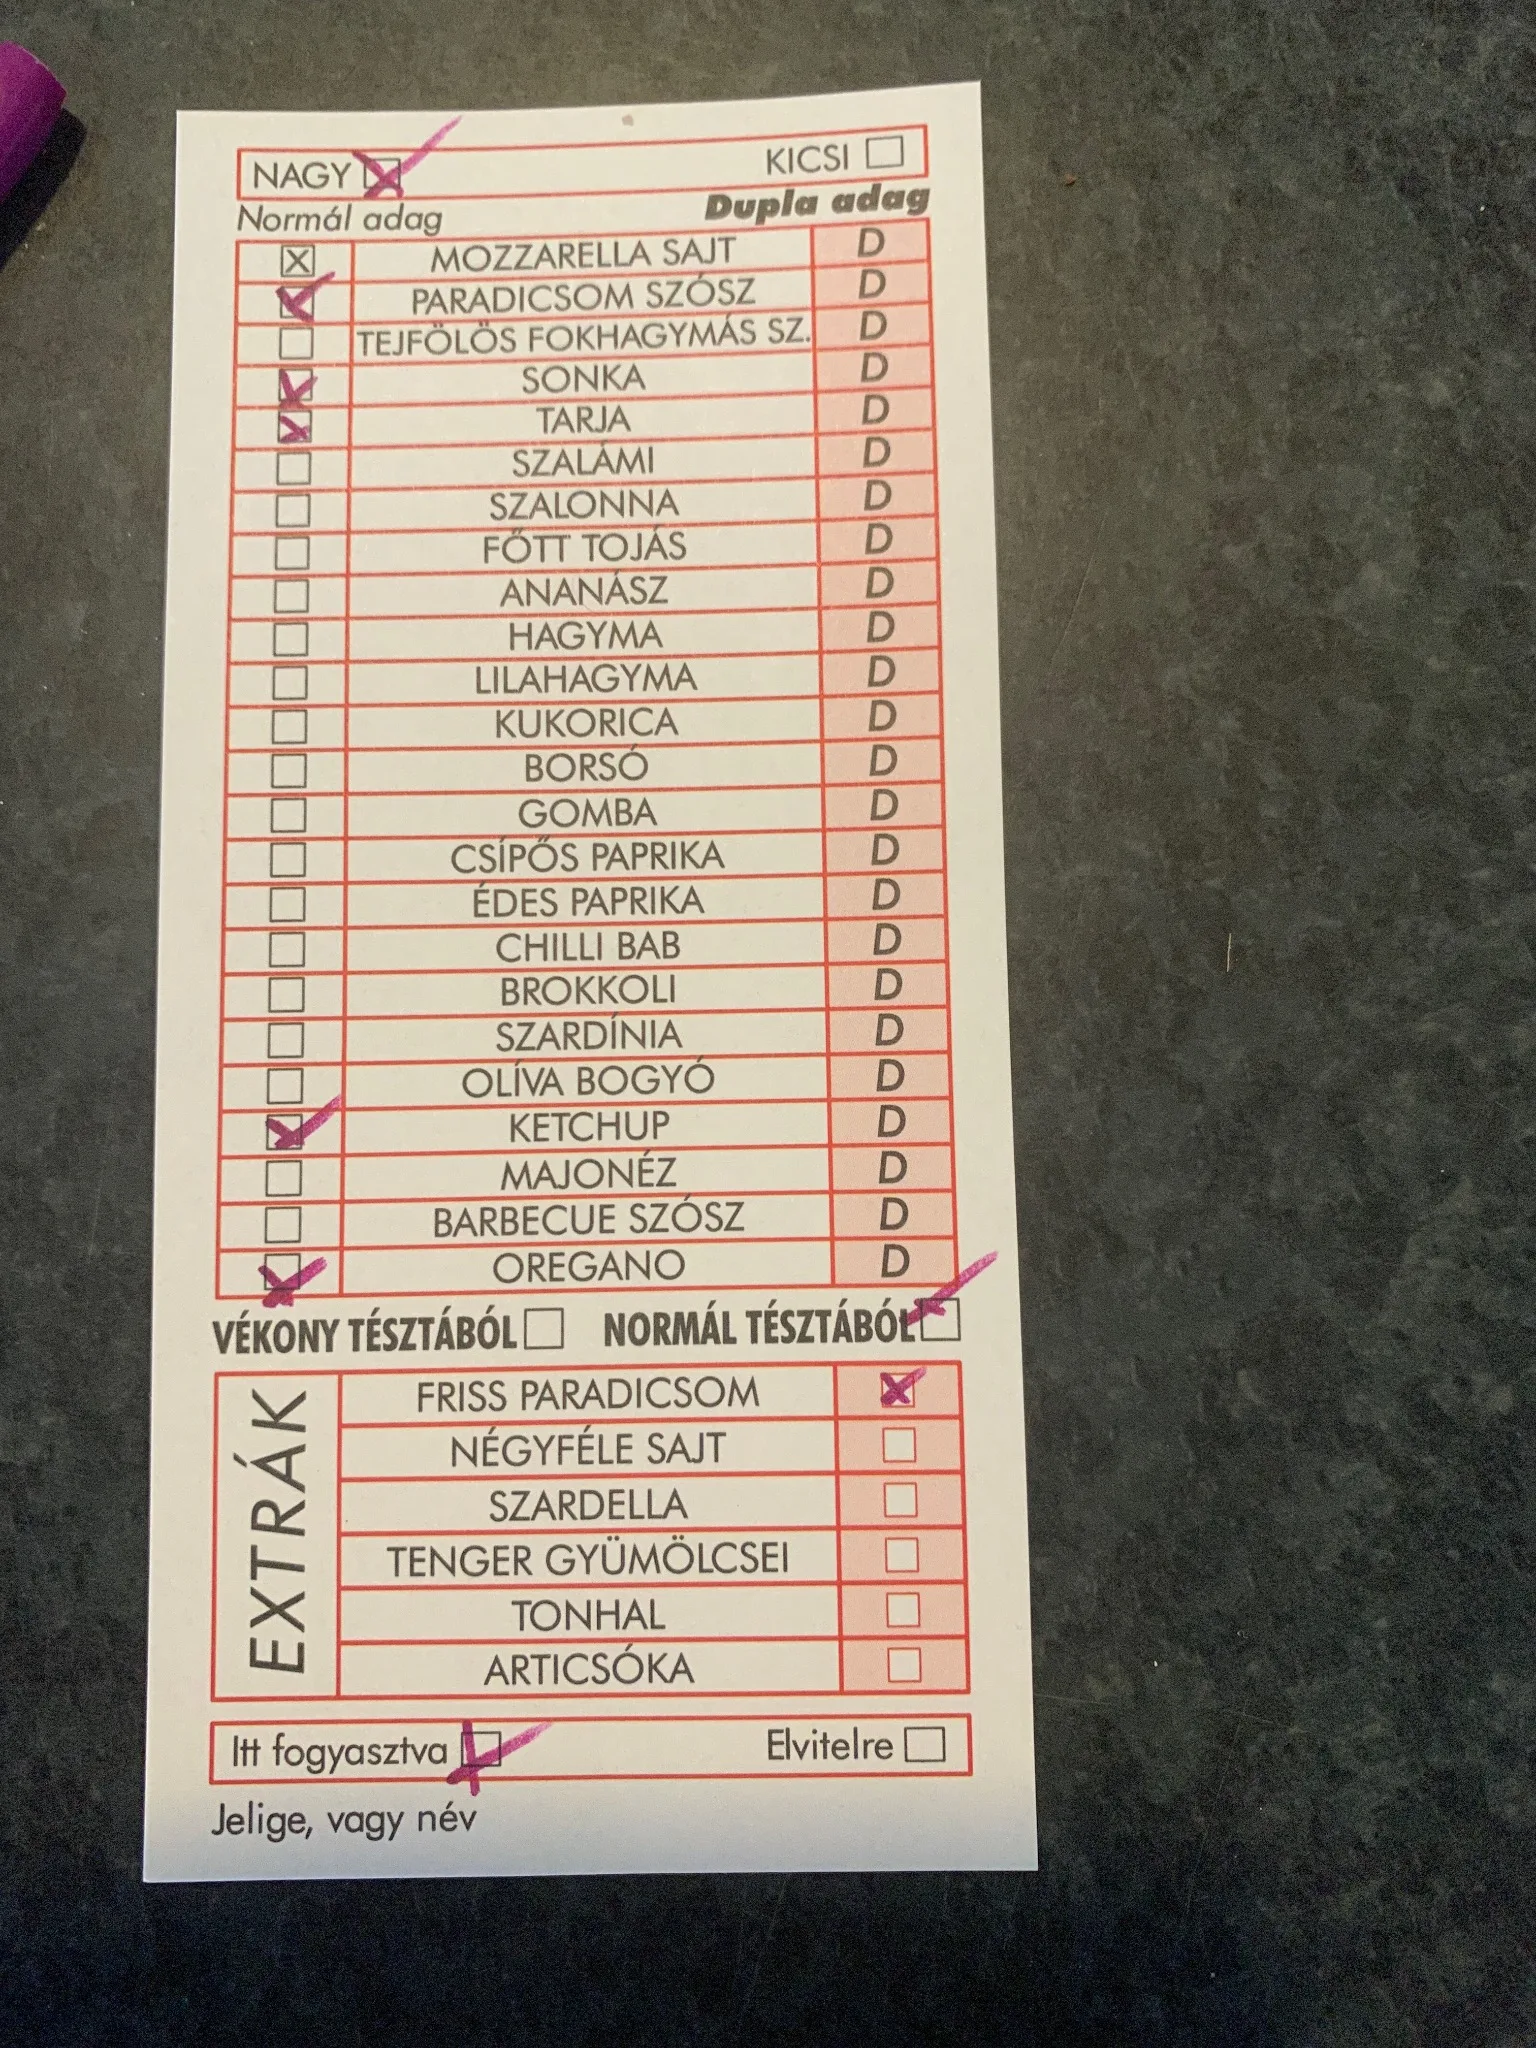 NAGY KICSI
Normál adag Dupla adag
MOZZARELLA SAJT D
PARADICSOM SZÓSZ D
TEJFÖLÖS FOKHAGYMÁS SZ. D
SONKA D
TARJA D
SZALÁMI D
SZALONNA D
FŐTT TOJÁS D
ANANÁSZ D
HAGYMA D
LILAHAGYMA D
KUKORICA D
BORSÓ D
GOMBA D
CSÍPŐS PAPRIKA D
ÉDES PAPRIKA D
CHILLI BAB D
BROKKOLI D
SZARDÍNIA D
OLÍVA BOGYÓ D
KETCHUP D
MAJONÉZ D
BARBECUE SZÓSZ D
OREGANO D
VÉKONY TÉSZTÁBÓL NORMÁL TÉSZTÁBÓL
EXTRÁK
FRISS PARADICSOM
NÉGYFÉLE SAJT
SZARDELLA
TENGER GYÜMÖLCSEI
TONHAL
ARTICSÓKA
Itt fogyasztva Elvitelre
Jelige, vagy név